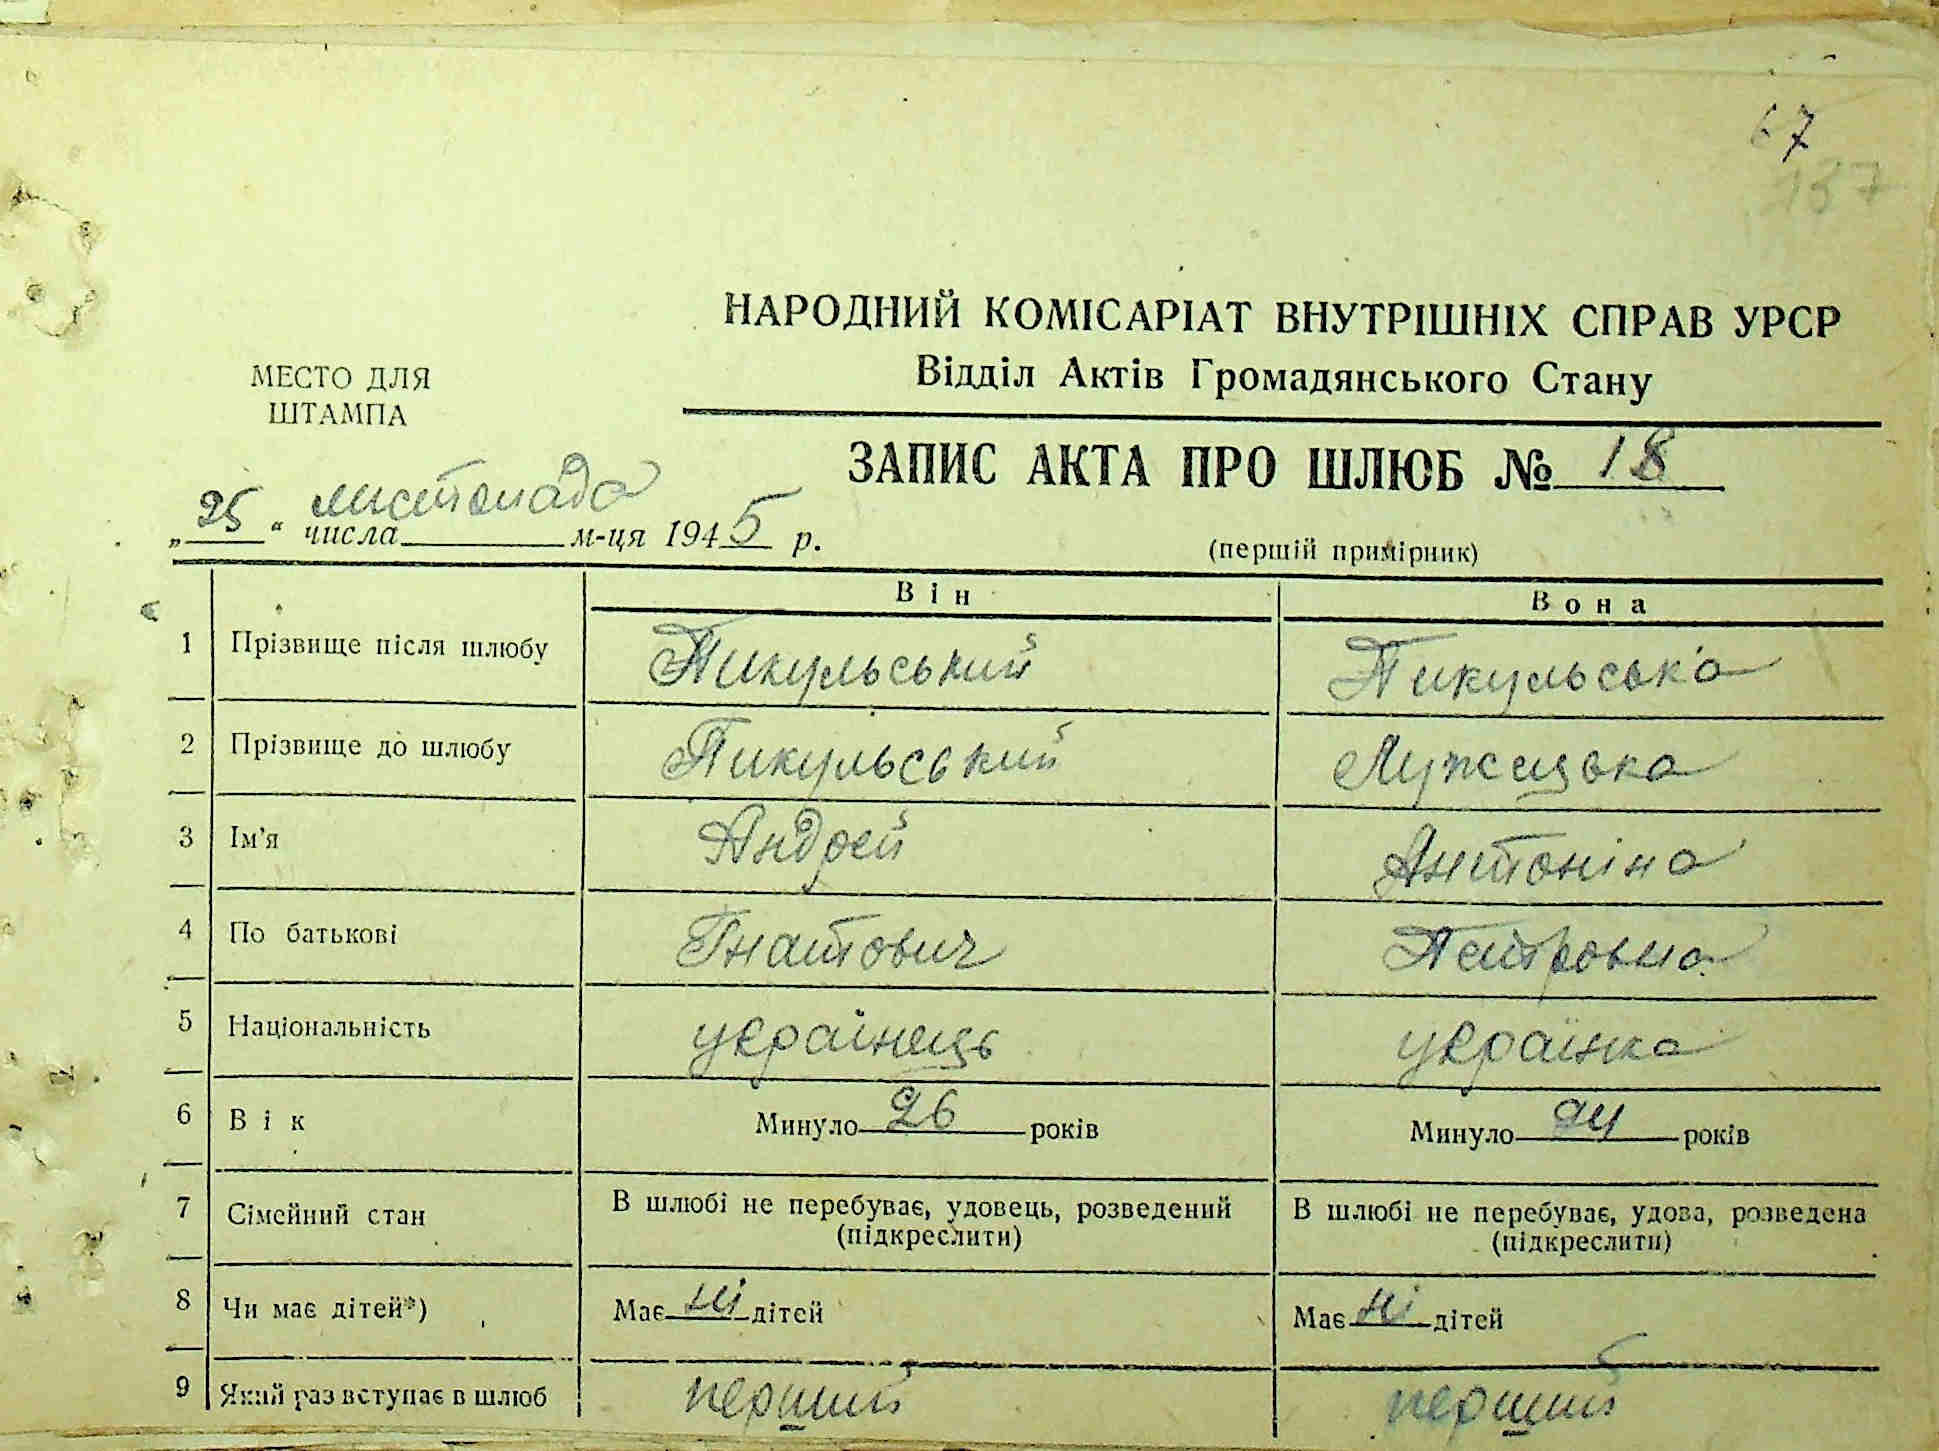 67
137
НАРОДНИЙ КОМІСАРІАТ ВНУТРІШНІХ СПРАВ УРСР
Відділ Актів Громадянського Стану
МЕСТО ДЛЯ
ШТАМПА
ЗАПИС АКТА ПРО ШЛЮБ № 18
„25“ числа листопада м-ця 1945 р.
(першій примірник)
Він Вона
1 Прізвище після шлюбу Пикульський Пикульська
2 Прізвище до шлюбу Пикульський Лужицька
3 Ім'я Андрей Антоніна
4 По батькові Гнатович Петровна
5 Національність українець українка
6 Вік Минуло 26 років Минуло 24 років
7 Сімейний стан В шлюбі не перебуває, удовець, розведений (підкреслити) В шлюбі не перебуває, удова, розведена (підкреслити)
8 Чи має дітей*) Має ні дітей Має ні дітей
9 Який раз вступає в шлюб перший перший